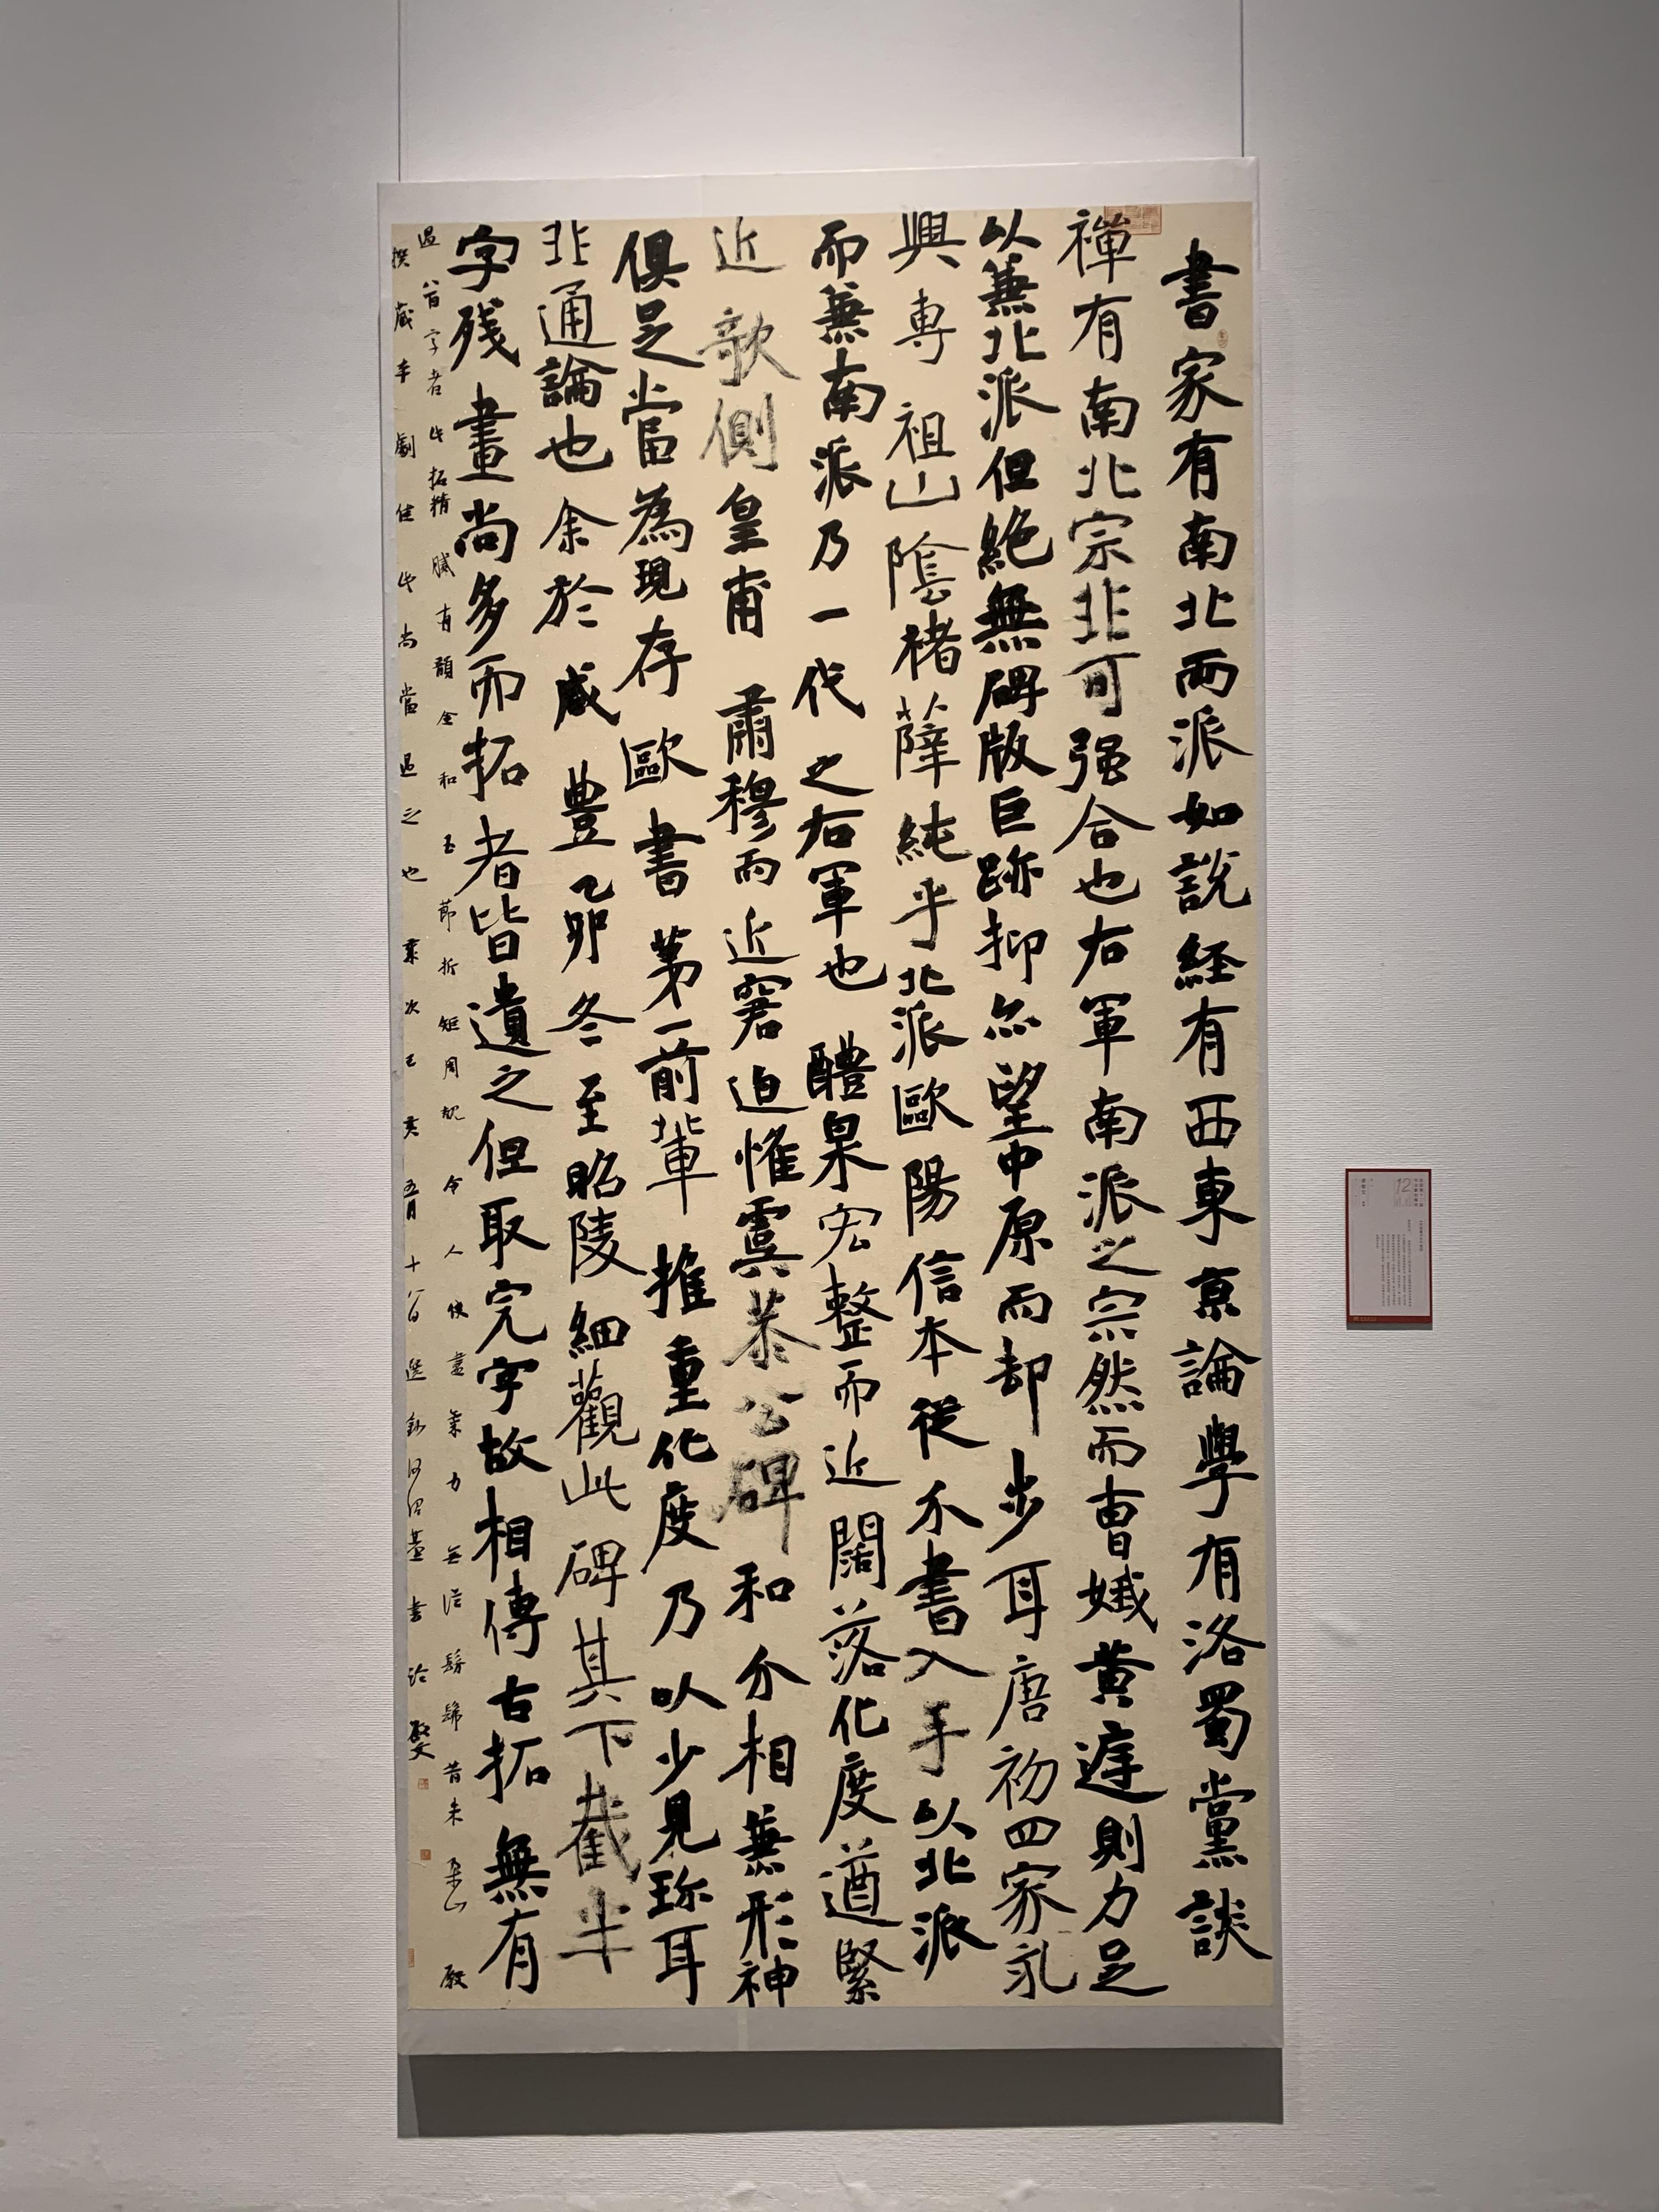 書家有南北兩派如說経有西東京論學有洛蜀黨談
禪有南北宗非可强合也右軍南派之宗然而曹娥黄庭則力足
以兼北派但絶無碑版巨跡抑亦望中原而却步耳唐初四家永
興專祖山陰褚薛純乎北派歐陽信本從分書入手以北派
而兼南派乃一代之右軍也醴泉宏整而近闊落化度遒緊
近欹側皇甫肅穆而近窘迫惟虞恭公碑和介相兼形神
俱足當為現存歐書第一前輩推重化度乃以少見珎耳
非通論也余於咸豊乙卯冬至昭陵細觀此碑其下截半
字殘畫尚多而拓者皆遺之但取完字故相傳古拓無有
過八百字者此拓精腻有韻金和玉節折矩周規令人使盡氣力無活髣髴昔朱朵山殿
撰蔵本劇佳此尚當過之也葉次己亥五月十八日選鈔何紹基書論
12